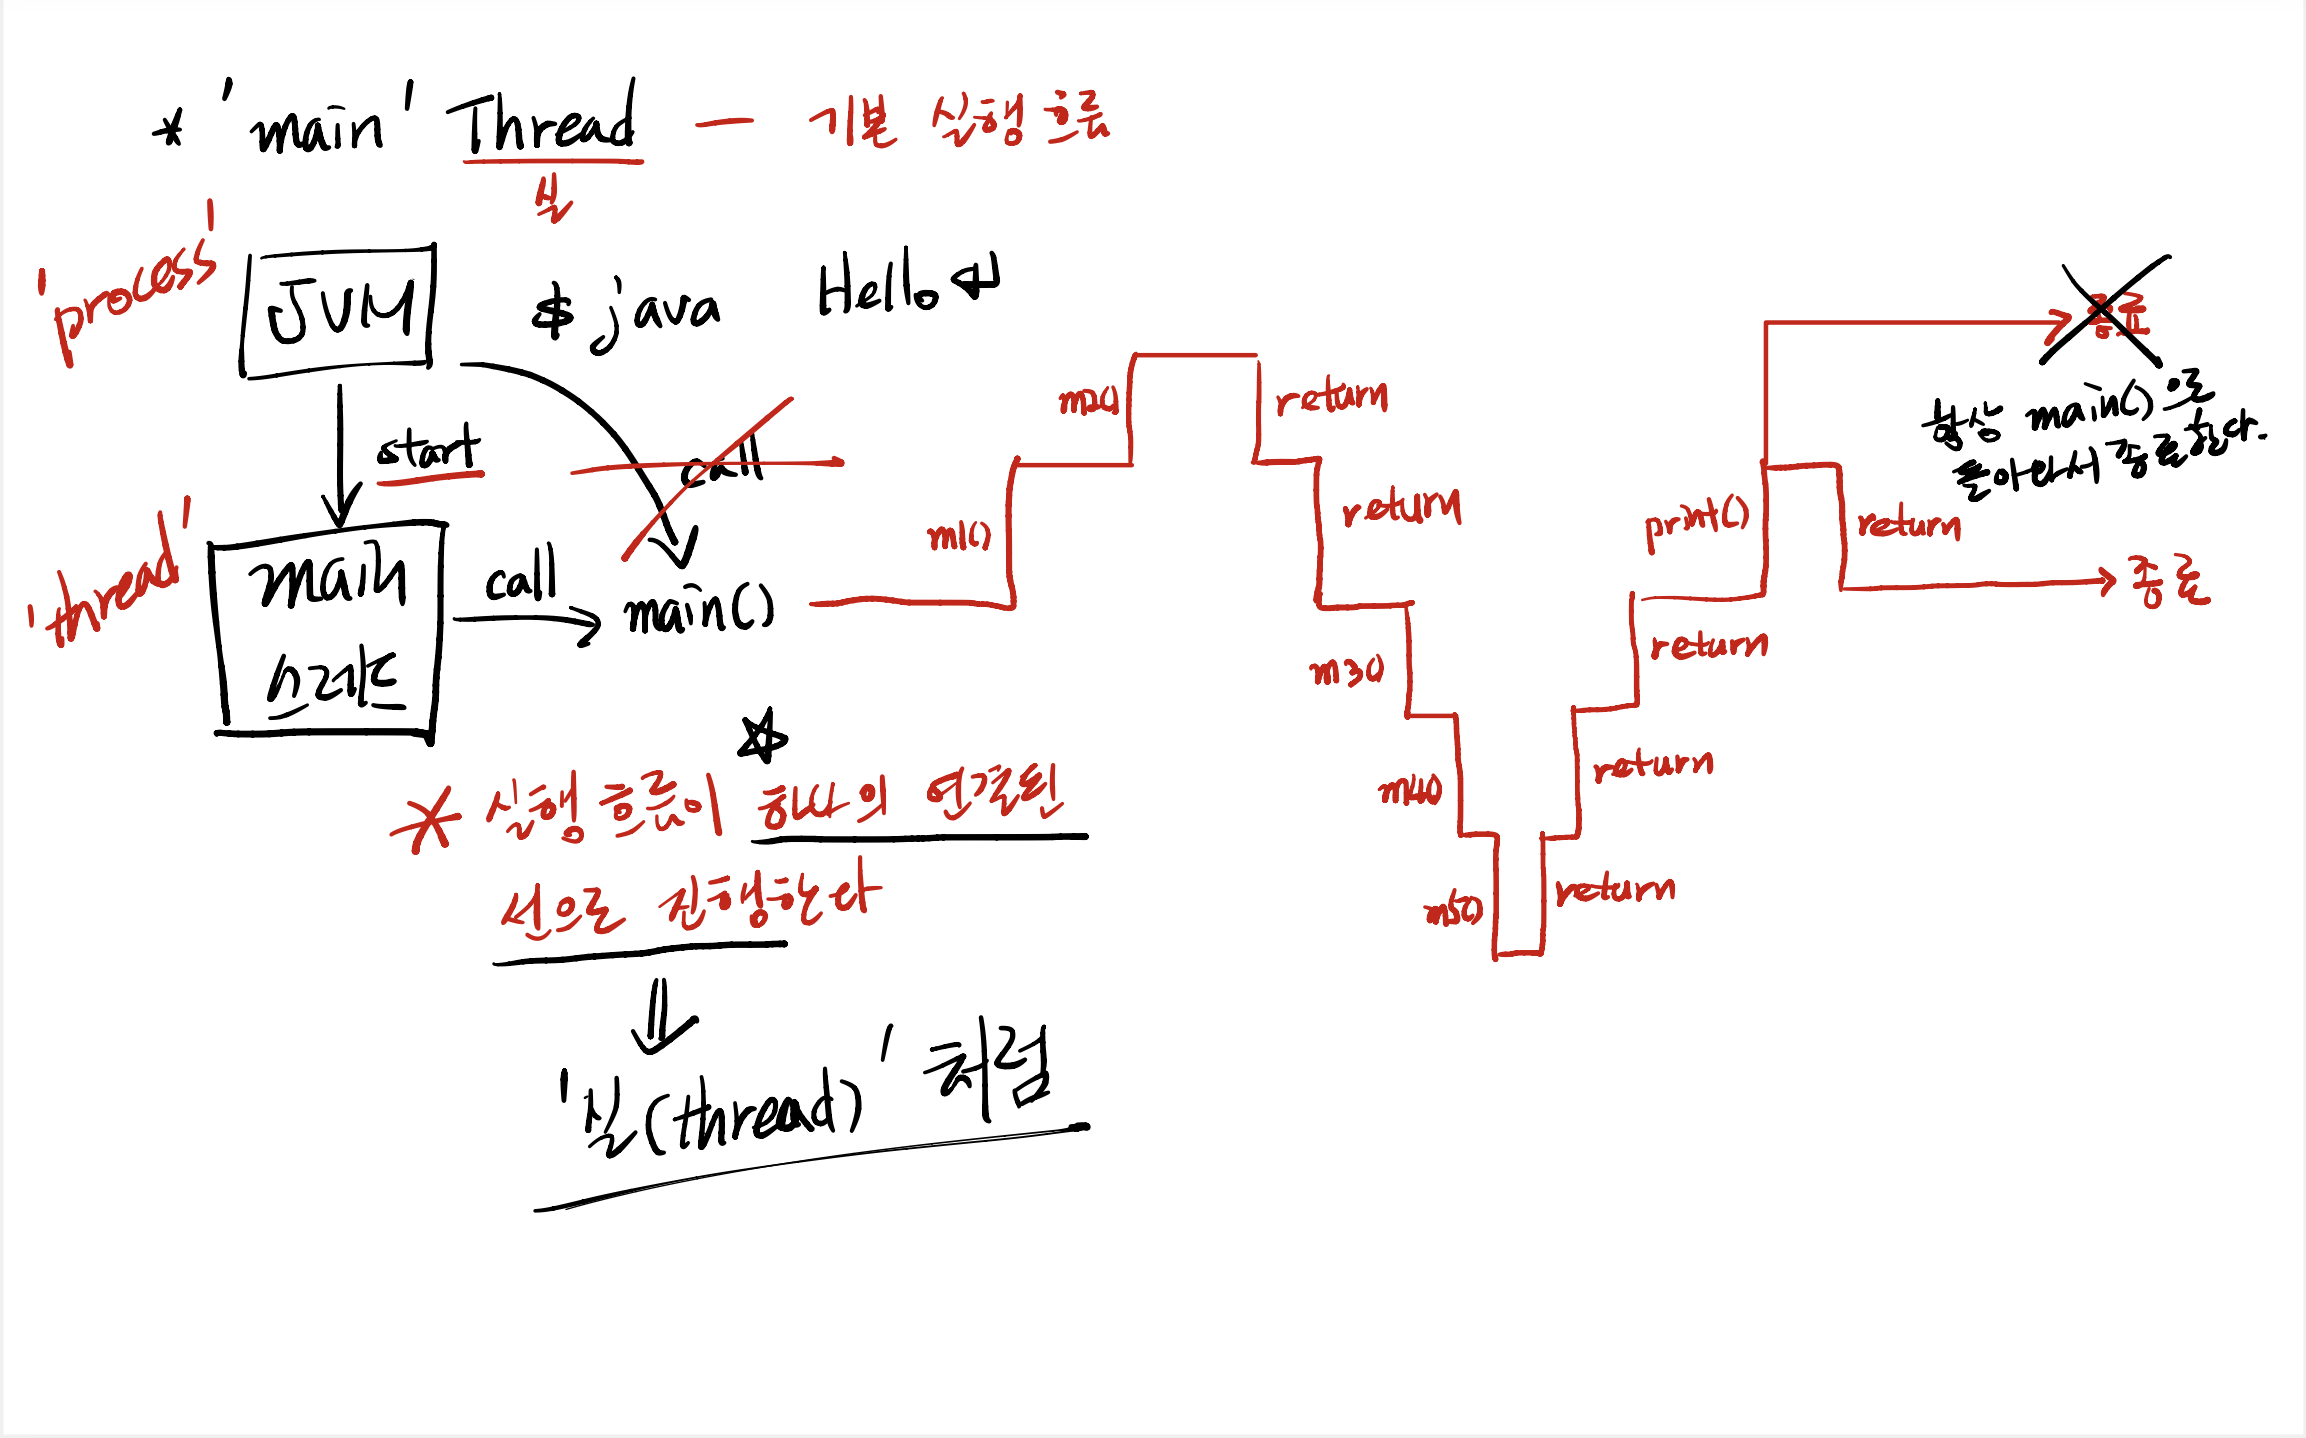 * 'main' Thread — 기본 실행 흐름
실
'process'
JVM
$ java Hello ↵
start
call
'thread'
main
스레드
call
main()
m1()
m2()
return
return
m3()
m4()
m5()
return
return
return
print()
return
종료
종료
항상 main()으로
돌아와서 종료한다.
* 실행 흐름이 하나의 연결된
선으로 진행한다
⇓
'실(thread)' 처럼